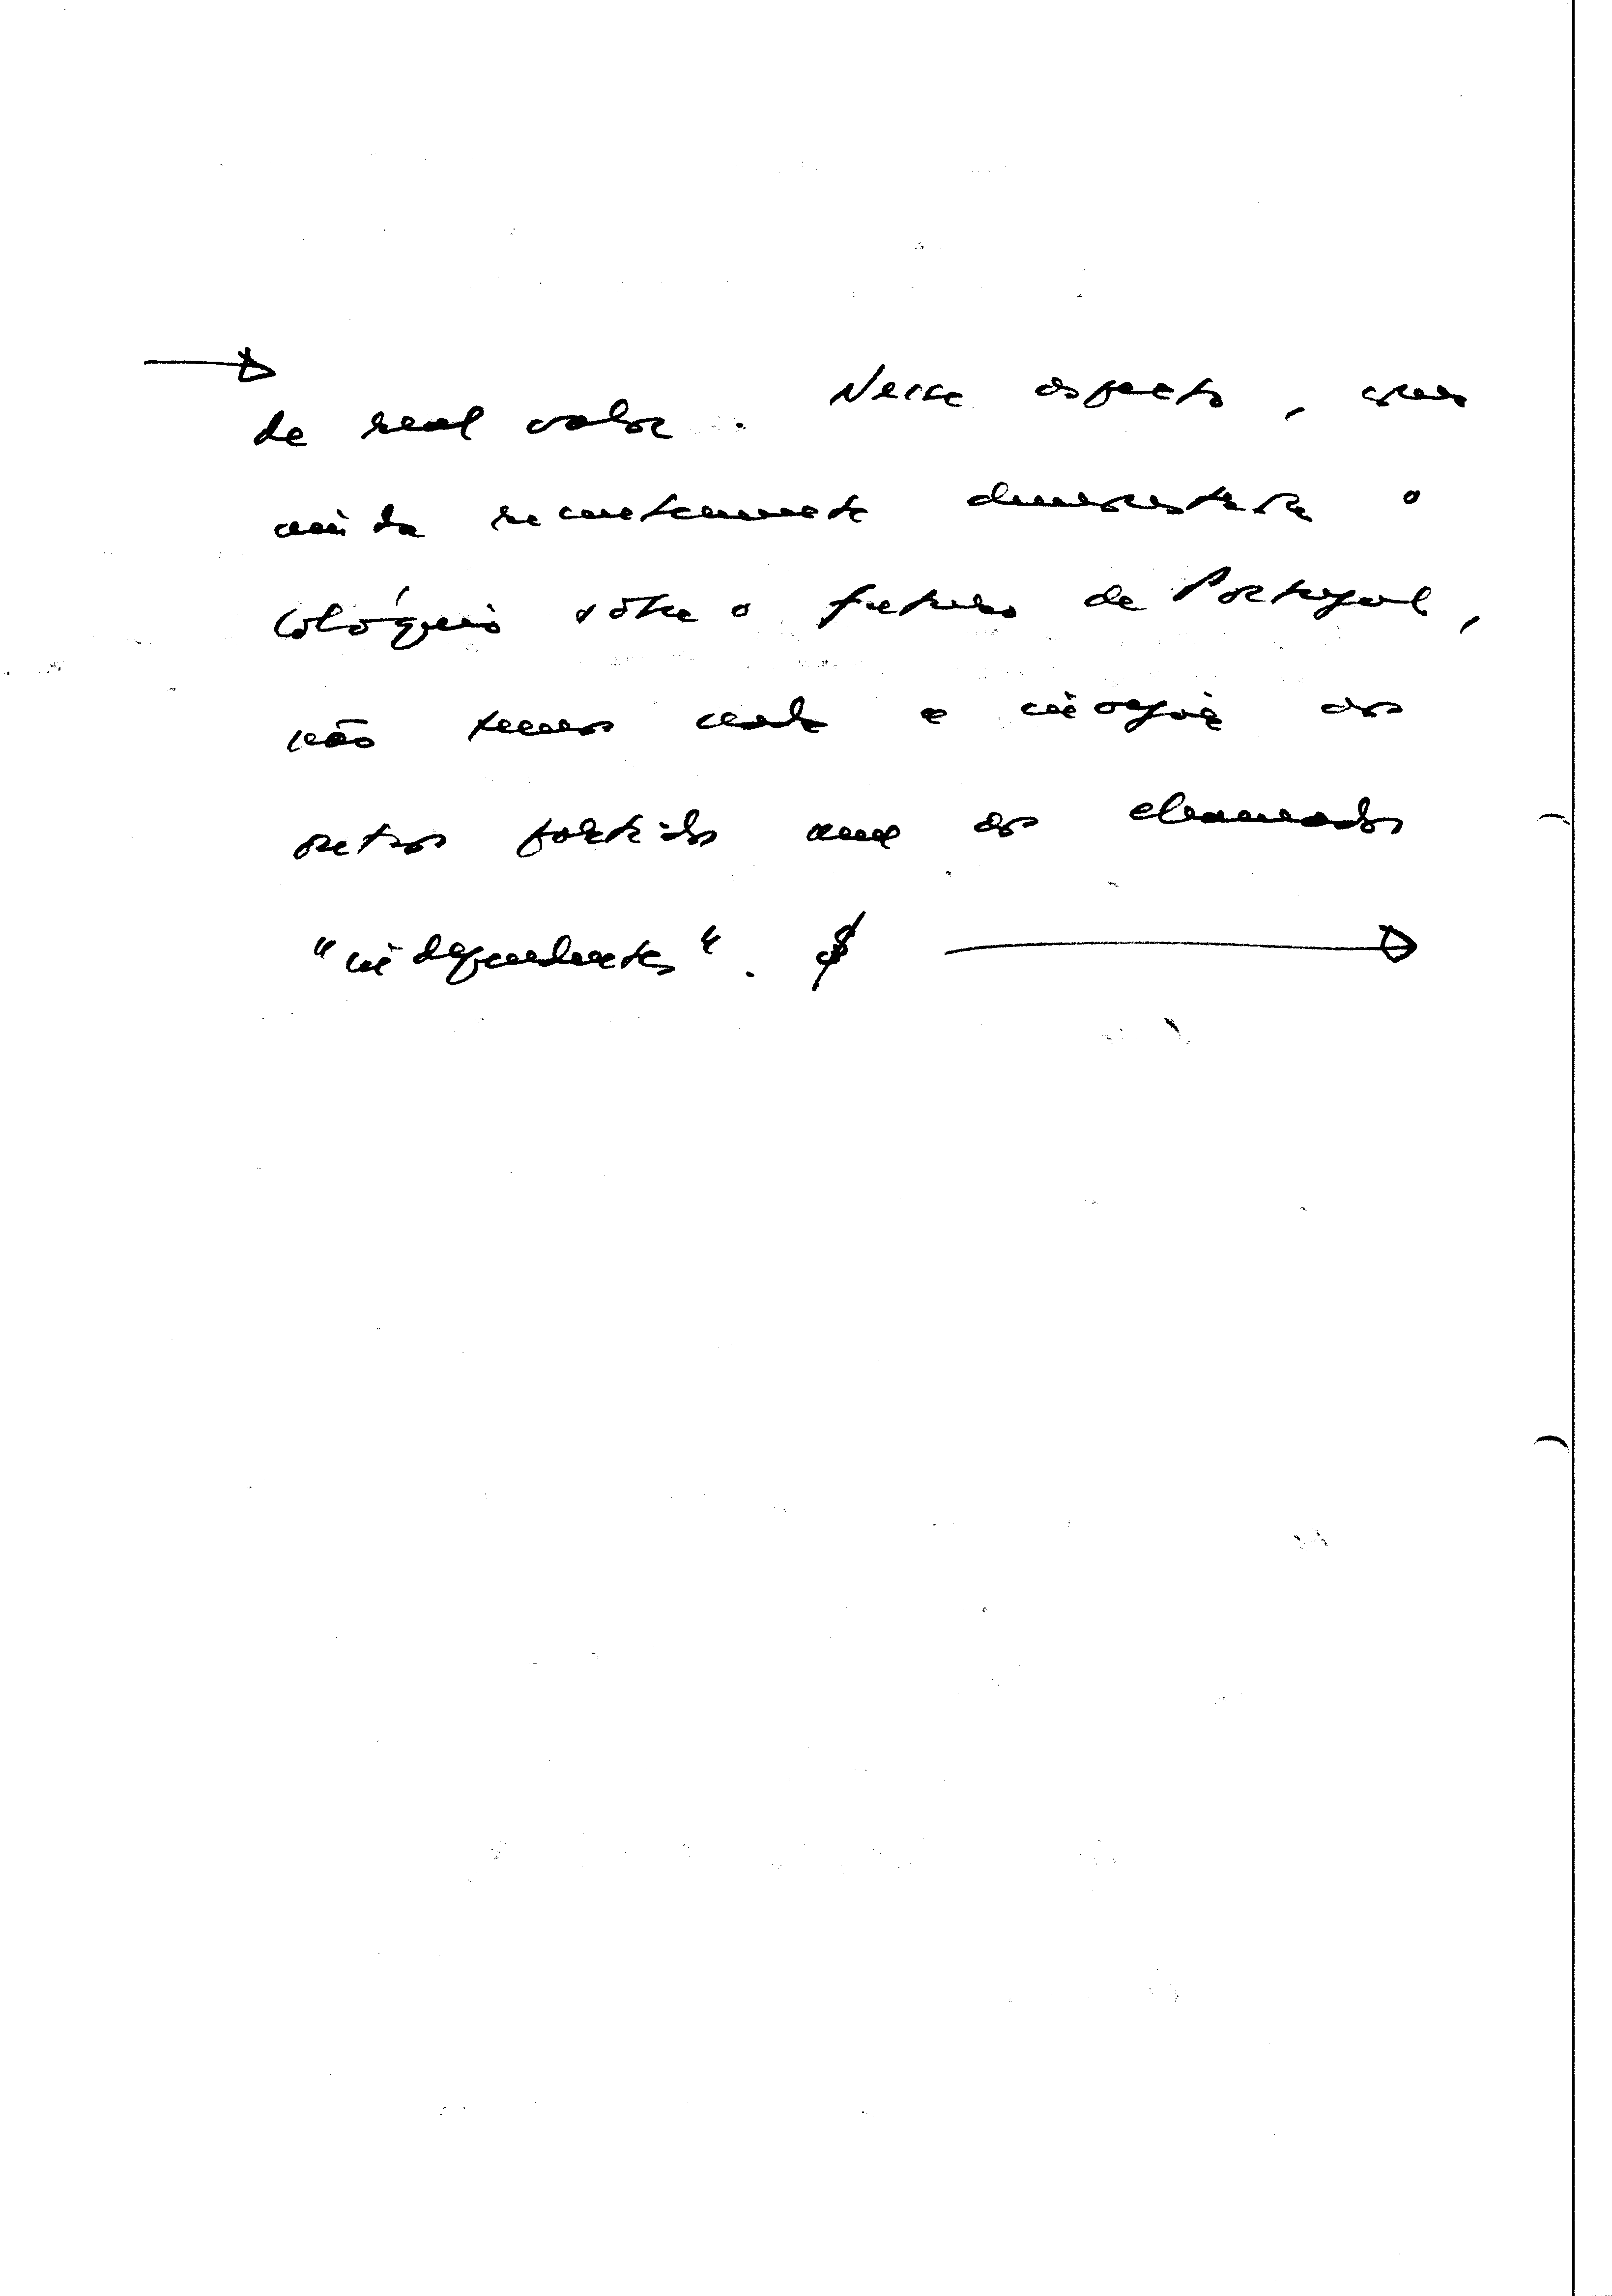 de real valor. Nesse aspecto, como
ainda recentemente demonstrara o
Colóquio sôbre o futuro de Portugal,
não temos nada a invejar aos
outros partidos nem aos chamados
"independentes".